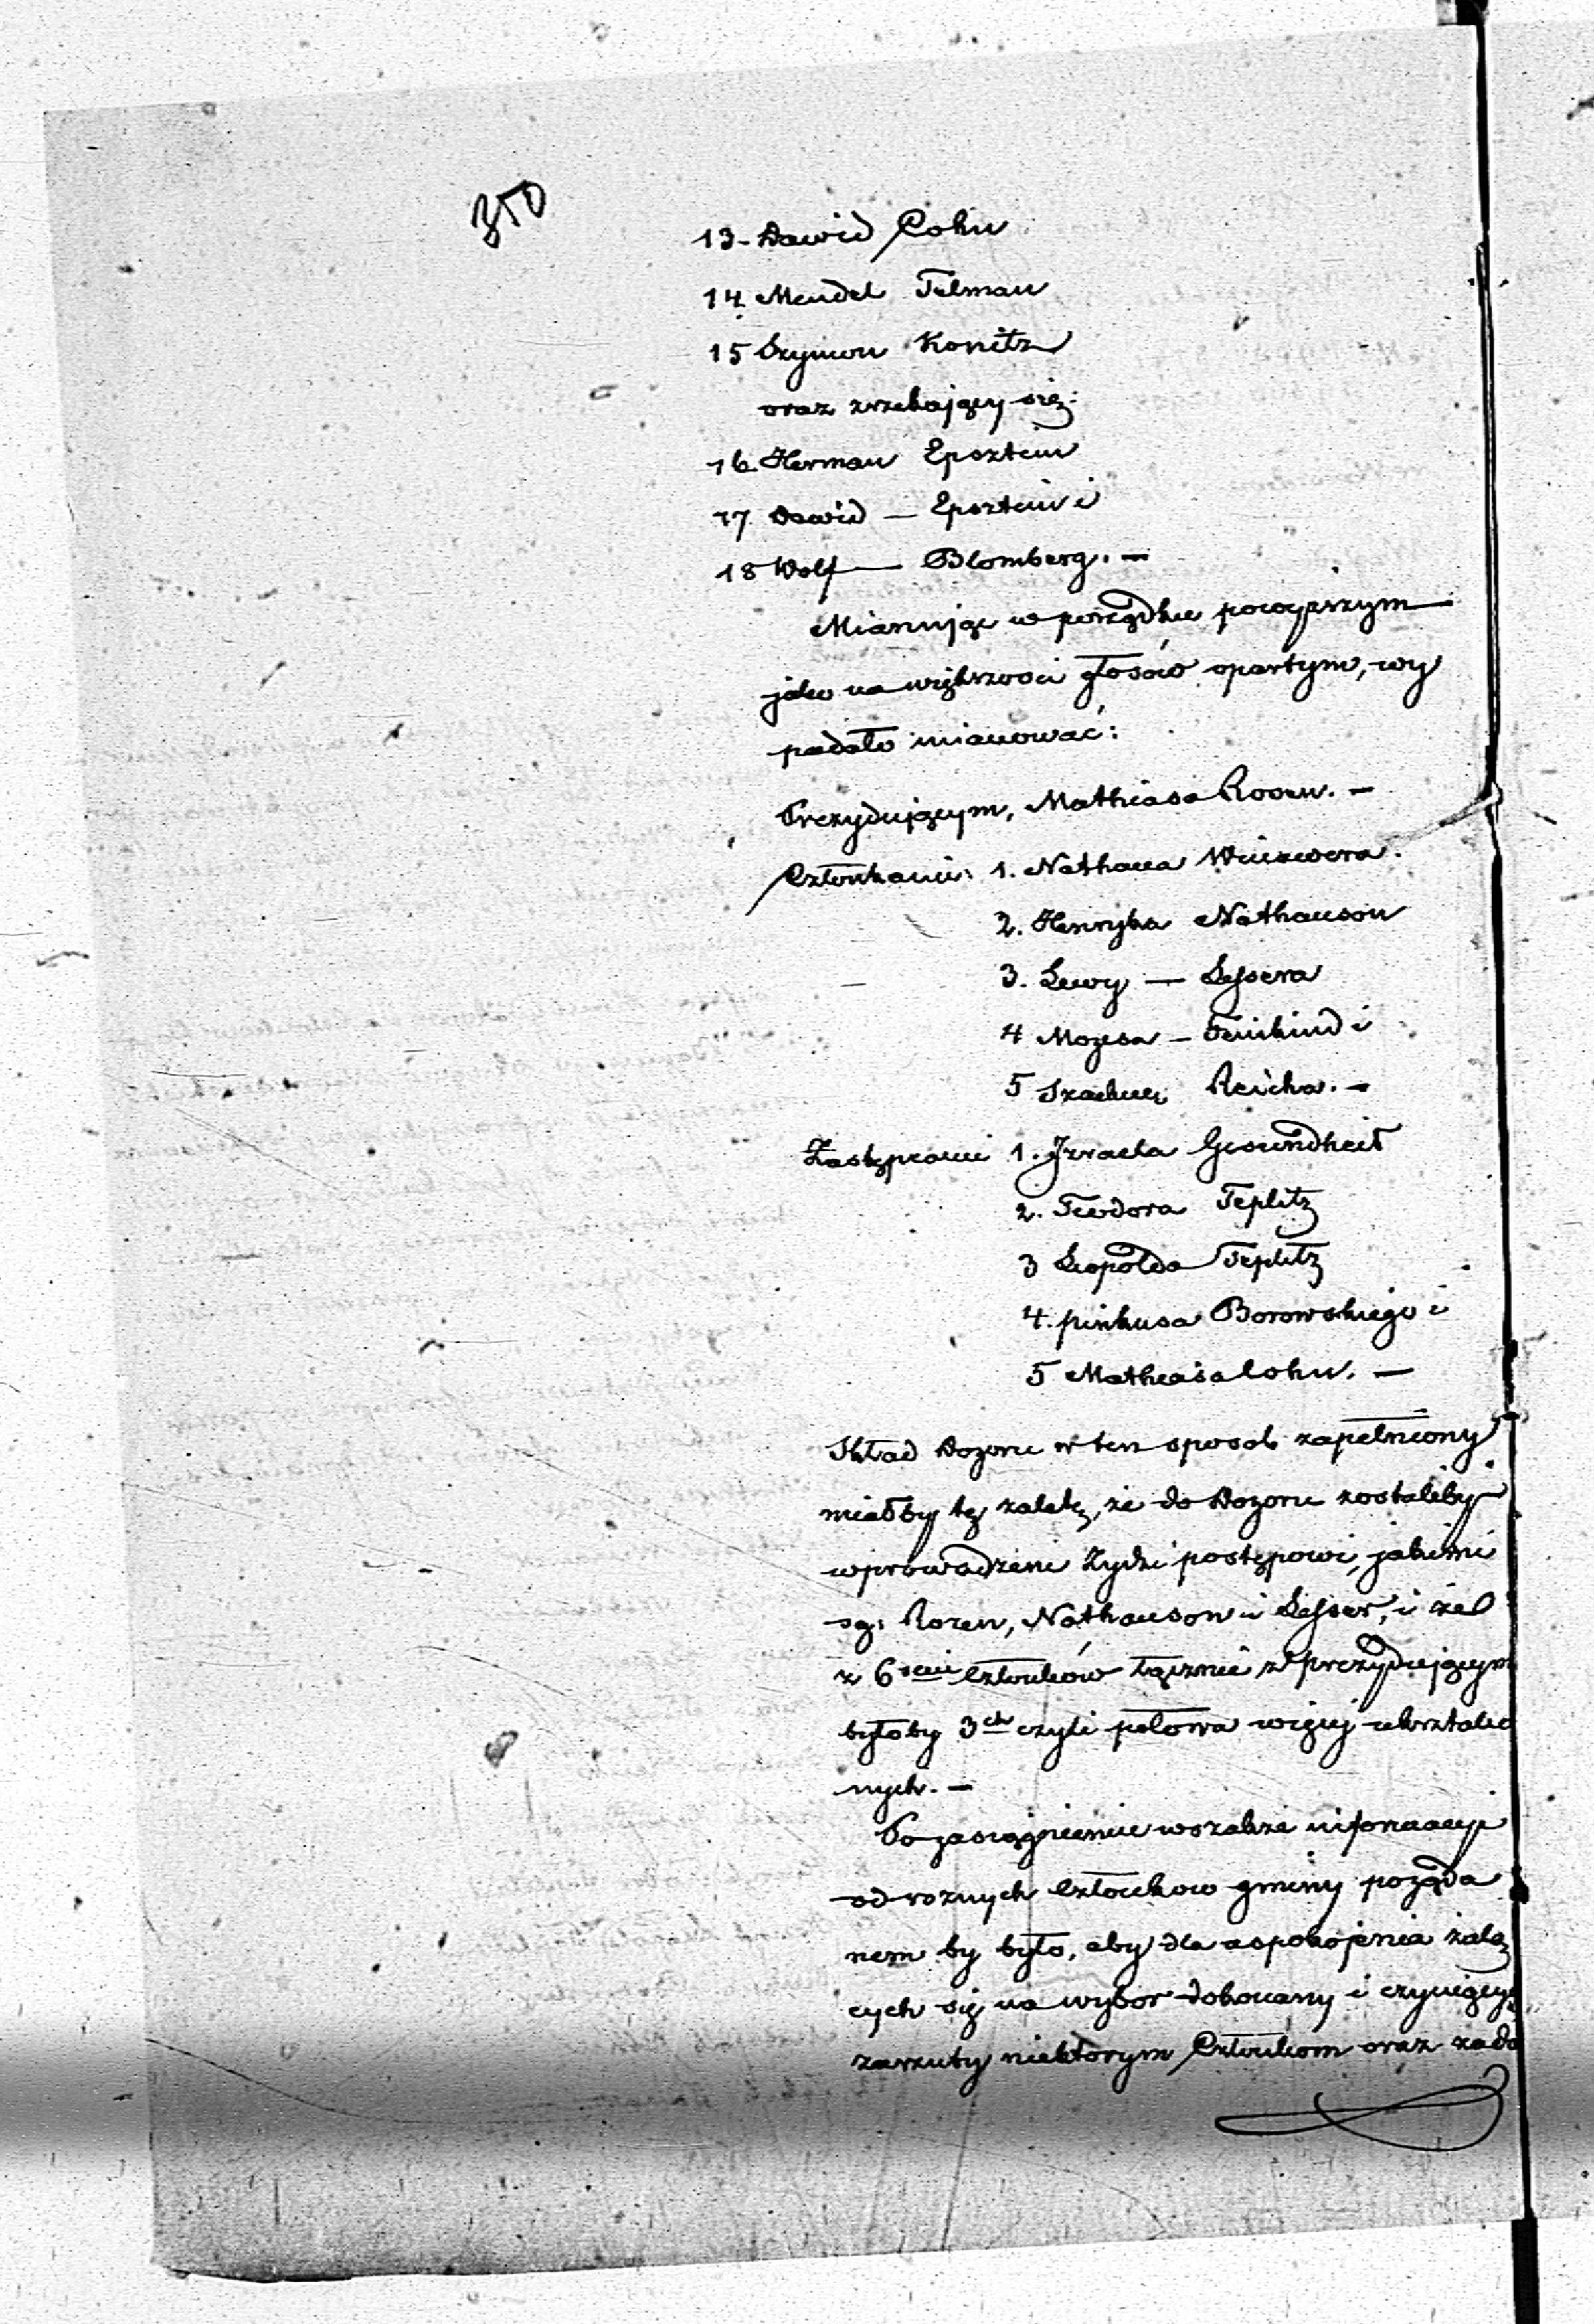 350
13- Dawid Cohn
14. Mendel Telman
15 Szymon Konitz
oraz zrzekający się:
16. Herman Epsztein
17. Dawid — Epsztein i
18 Wolf — Blomberg. —
Mianując w porządku powyższym
jako na większości głosów opartym, wy
padało mianować:
Prezydującym, Mathiasa Rosen. —
Członkami: 1. Nathana Winawera.
2. Henryka Nathanson
3. Lewy — Lessera
4 Mozesa — Feinkind i
5 Szachnę Reicha. —
Zastępcami 1. Izraela Gesundheit
2. Teodora Teplitz
3 Leopolda Teplitz
4. pinkusa Borowskiego i
5 Mathiasa Cohn. —
Skład Dozoru w ten sposob zapełniony
miałby tę zaletę, że do Dozoru zostaliby
wprowadzeni Żydzi postępowi, jakimi
są: Rozen, Nathanson i Lesser, i że
z 6ciu członków łącznie z prezydującym
byłoby 3ch czyli połowa więcej ukształco
nych. —
Po zasiągnieniu wszakże informacyi
od roznych członkow gminy pożąda
nem by było, aby dla uspokojenia żalą
cych się na wybor dokonany i czyniący
zarzuty niektorym Członkom oraz zado